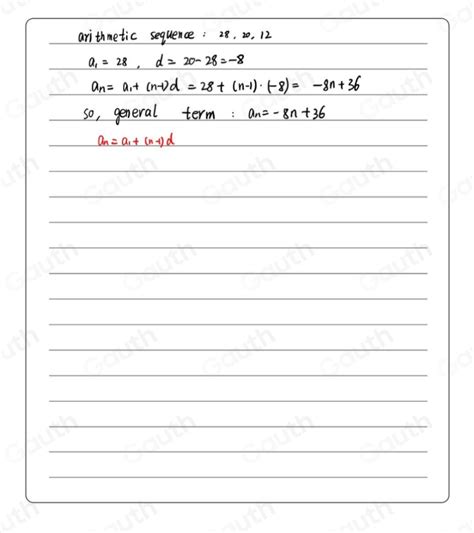 arithmetic sequence : 28, 20, 12
a₁ = 28 , d = 20-28=-8
aₙ = a₁ + (n-1)d = 28 + (n-1)·(-8) = -8n+36
so, general term : aₙ = -8n+36
aₙ = a₁ + (n-1)d
Gauth